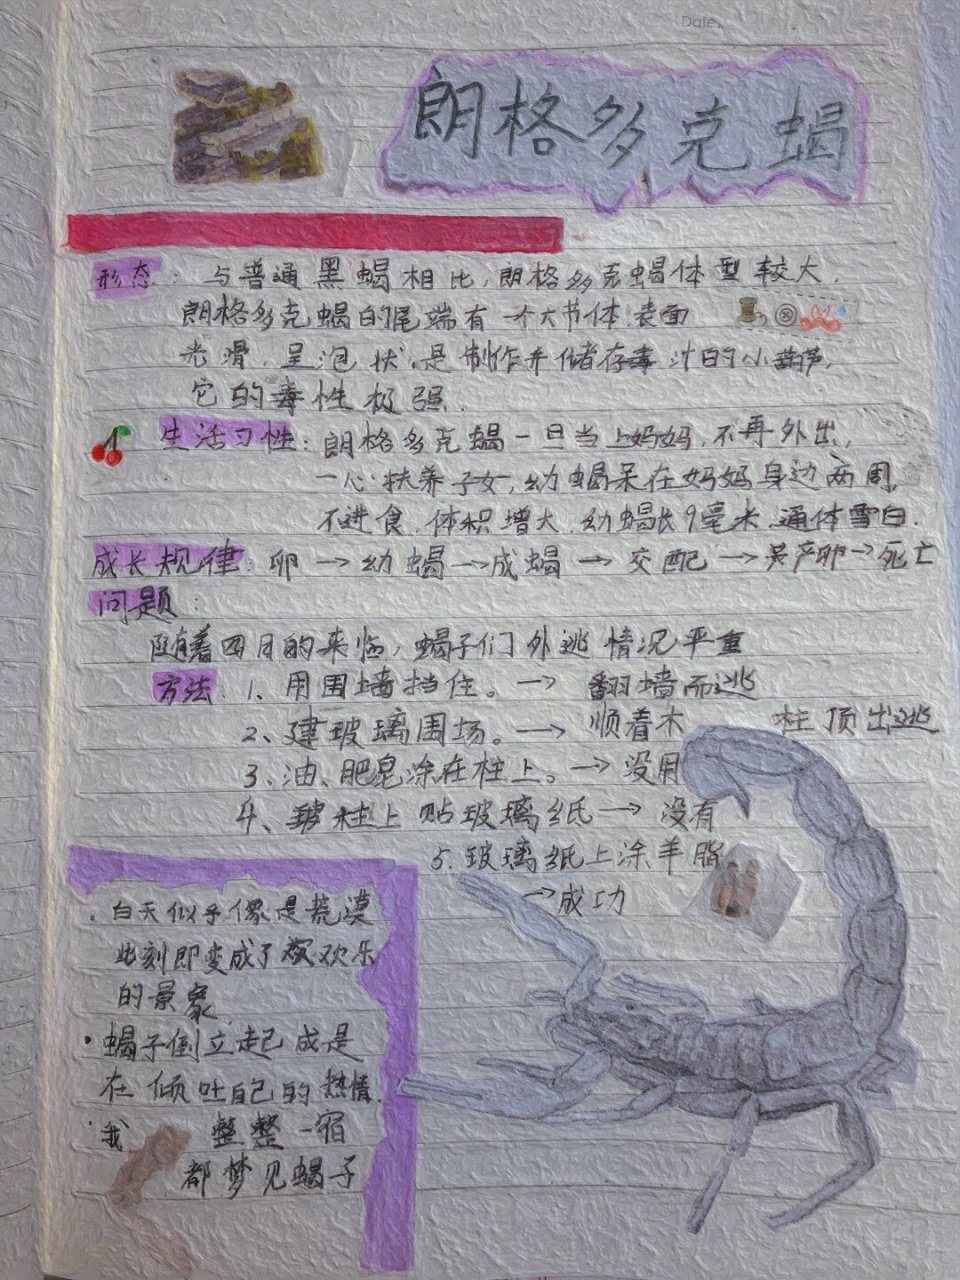 Date
朗格多克蝎
形态：与普通黑蝎相比，朗格多克蝎体型较大，
朗格多克蝎的尾端有一个大节体，表面
光滑，呈泡状，是制作并储存毒汁的小葫芦，
它的毒性极强．
生活习性：朗格多克蝎一旦当上妈妈，不再外出，
一心扶养子女，幼蝎呆在妈妈身边两周，
不进食．体积增大．幼蝎长9毫米．通体雪白．
成长规律：卵→幼蝎→成蝎→交配→产卵→死亡
问题：
随着四月的来临，蝎子们外逃情况严重
方法 1、用围墙挡住。→ 翻墙而逃
2、建玻璃围场。→ 顺着木 柱顶出逃
3、油、肥皂涂在柱上。→没用
4、柱上贴玻璃纸→没有
5．玻璃纸上涂羊脂
→成功
．白天似乎像是荒漠
此刻即变成了欢乐
的景象
·蝎子倒立起 成是
在倾吐自己的热情．
·我 整整一宿
都梦见蝎子